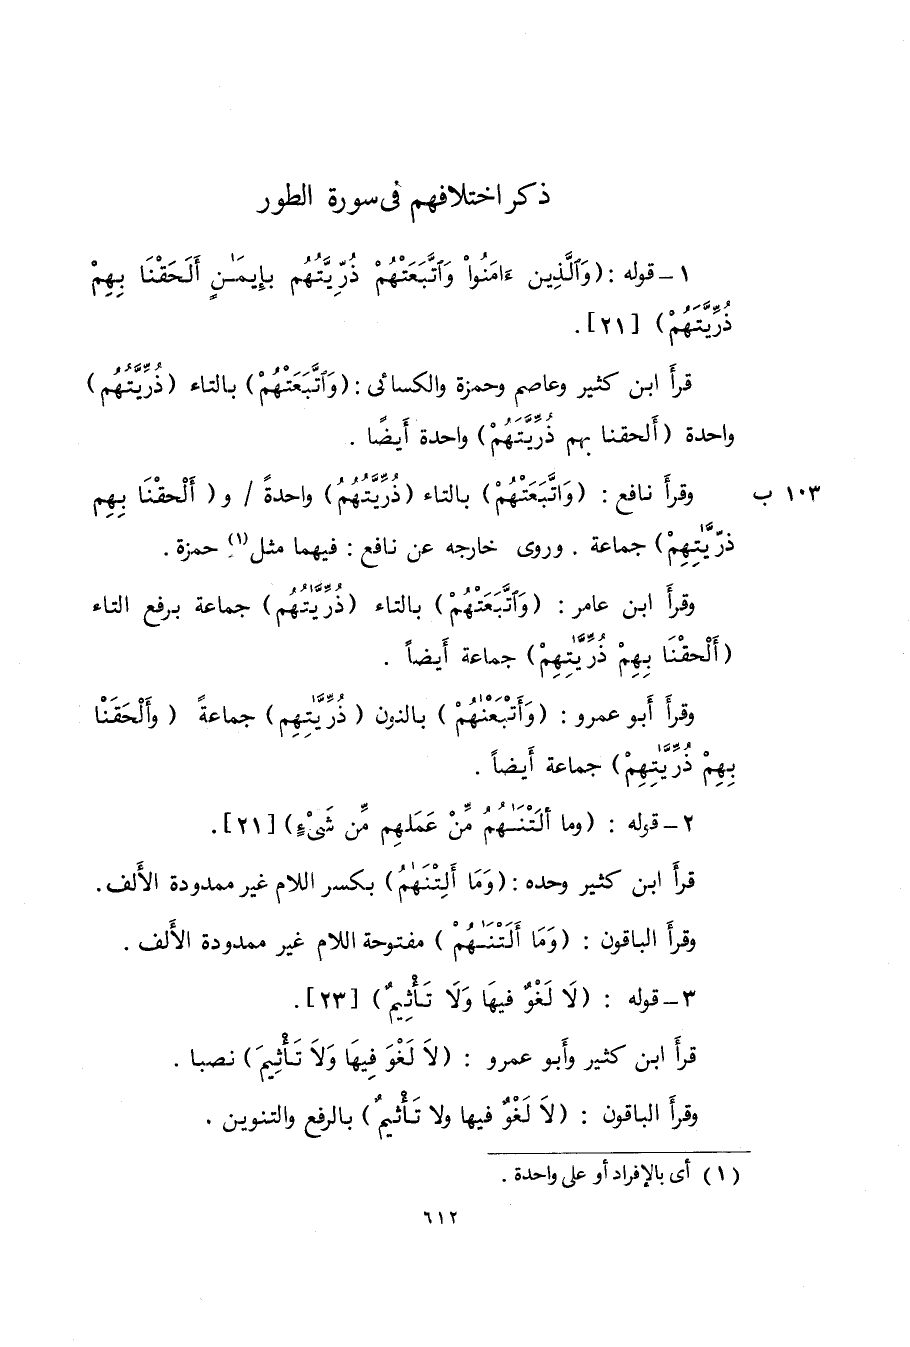 ذكر اختلافهم فى سورة الطور
١ – قوله : (وَٱلَّذِين ءَامَنُواْ وَٱتَّبَعَتْهُمْ ذُرِّيَّتُهُم بِإِيمَـٰنٍ أَلَحَقْنَا بِهِمْ
ذُرِّيَّتَهُمْ) [٢١].
قرأ ابن كثير وعاصم وحمزة والكسائى : (وَٱتَّبَعَتْهُمْ) بالتاء (ذُرِّيَّتُهُم)
واحدة (أَلحقنا بهم ذُرِّيَّتَهُمْ) واحدة أَيضًا .
وقرأَ نافع : (وَاتَّبَعَتْهُمْ) بالتاء (ذُرِّيَّتُهُمُ) واحدةً / و( أَلْحقْنَا بِهِم ١٠٣ ب
ذرِّيَّاتِهِمْ) جماعة . وروى خارجه عن نافع : فيهما مثل(١) حمزة .
وقرأَ ابن عامر : (وَٱتَّبَعَتْهُمْ) بالتاء (ذُرِّيَّاتُهُم) جماعة برفع التاء
(أَلْحقْنَا بِهِمْ ذُرِّيَّاتِهِمْ) جماعة أَيضاً .
وقرأَ أَبو عمرو : (وَأَتْبَعْنٰهُمْ ) بالنون ( ذُرِّيَّاتِهِم) جماعةً ( وأَلْحَقَنْا
بِهِمْ ذُرِّيَّاتِهِمْ) جماعة أَيضاً .
٢ – قوله : (وما أَلَتْنَـٰهُمُ مِّنْ عَمَلهِم مِّن شَىْءٍ) [٢١].
قرأَ ابن كثير وحده : (وَمَا أَلِتْنَـٰهُمُ) بكسر اللام غير ممدودة الأَلف.
وقرأَ الباقون : (وَمَا أَلَتْنَـٰهُمْ ) مفتوحة اللام غير ممدودة الأَلف .
٣ – قوله : (لَا لَغْوٌ فيهَا وَلَا تَأْثِيمٌ) [٢٣].
قرأَ ابن كثير وأَبو عمرو : (لاَ لَغْوَ فِيهَا وَلاَ تَأْثِيمَ) نصبا .
وقرأَ الباقون : (لاَ لَغْوٌ فيها ولا تَأْثيمٌ) بالرفع والتنوين .
(١) أى بالإفراد أو على واحدة .
٦١٢